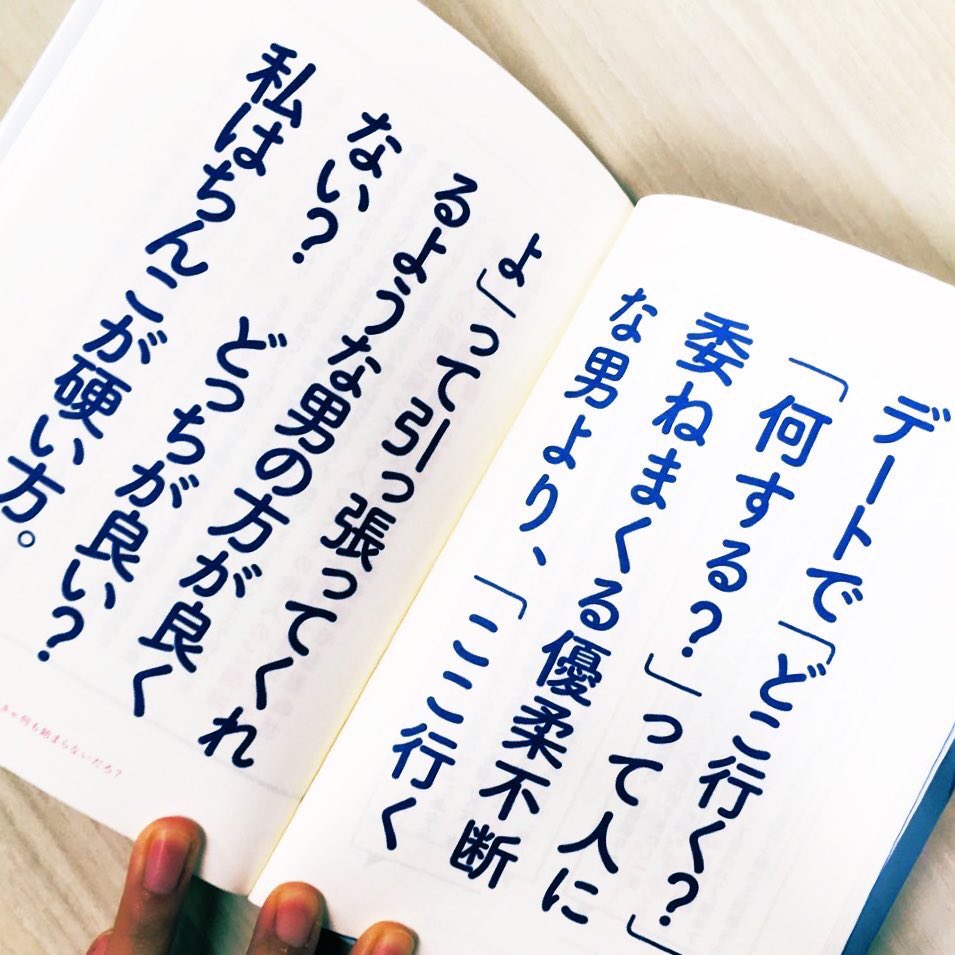 デートで「どこ行く？」
「何する？」って人に
委ねまくる優柔不断
な男より、「ここ行く
よ」って引っ張ってくれ
るような男の方が良く
ない？　どっちが良い？
私はちんこが硬い方。
きゃ何も始まらないだろ？